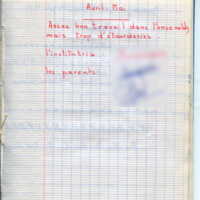 Avril. Mai
Assez bon travail dans l'ensemble,
mais trop d'étourderies.
l'institutrice
les parents